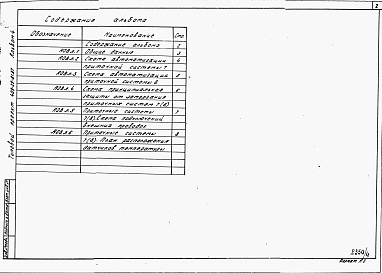 2
Содержание альбома
Обозначение Наименование Стр.
Содержание альбома 2
АОВ.л.1 Общие данные 3
АОВ.л.2 Схема автоматизации 4
приточной системы 7
АОВ.л.3 Схема автоматизации 5
приточной системы 8
АОВ.л.4 Схема принципиальная 6
защиты от замерзания
приточных систем 7(8)
АОВ.л.5 Приточные системы 7
7(8). Схема подключений
внешних проводок
АОВ.л.6 Приточные системы 8
7(8). План расположения
датчиков температуры
Типовой проект
Альбом
Формат А3